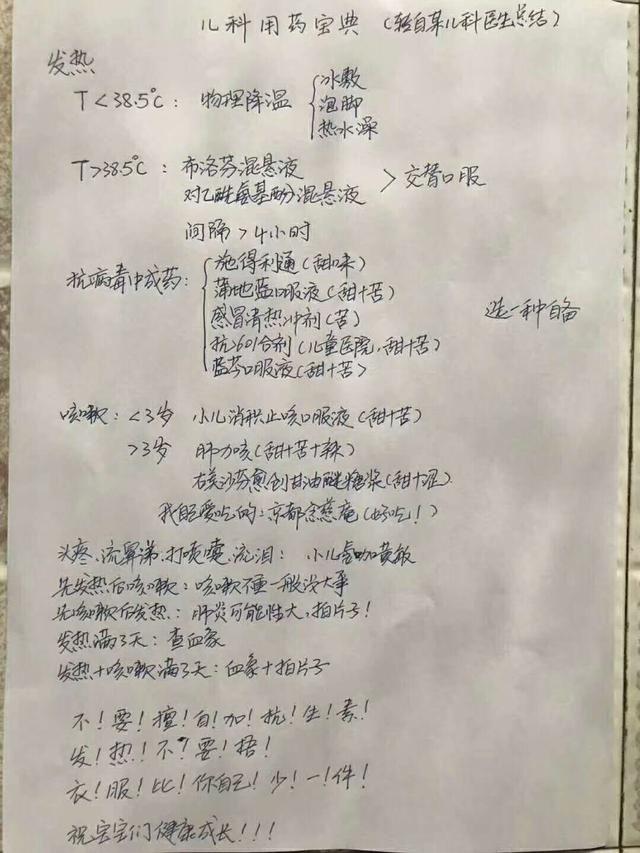 儿科用药宝典 (转自某儿科医生总结)
发热
T<38.5℃: 物理降温 { 冰敷
泡脚
热水澡
T>38.5℃: 布洛芬混悬液
对乙酰氨基酚混悬液 > 交替口服
间隔>4小时
抗病毒中成药: { 施得利通(甜味)
蒲地蓝口服液(甜+苦)
感冒清热冲剂(苦) 选一种自备
抗601合剂(儿童医院,甜+苦)
蓝芩口服液(甜+苦)
咳嗽: <3岁 小儿消积止咳口服液(甜+苦)
>3岁 肺力咳(甜+苦+辣)
右美沙芬愈创甘油醚糖浆(甜+涩)
我自己爱吃的: 京都念慈庵(好吃!)
头疼、流鼻涕、打喷嚏、流泪: 小儿氨咖黄敏
先发热后咳嗽: 咳嗽不重一般没大事
先咳嗽后发热: 肺炎可能性大,拍片子!
发热满3天: 查血象
发热+咳嗽满3天: 血象+拍片子
不!要!擅!自!加!抗!生!素!
发!热!不!要!捂!
衣!服!比!你自己!少!一!件!
祝宝宝们健康成长!!!